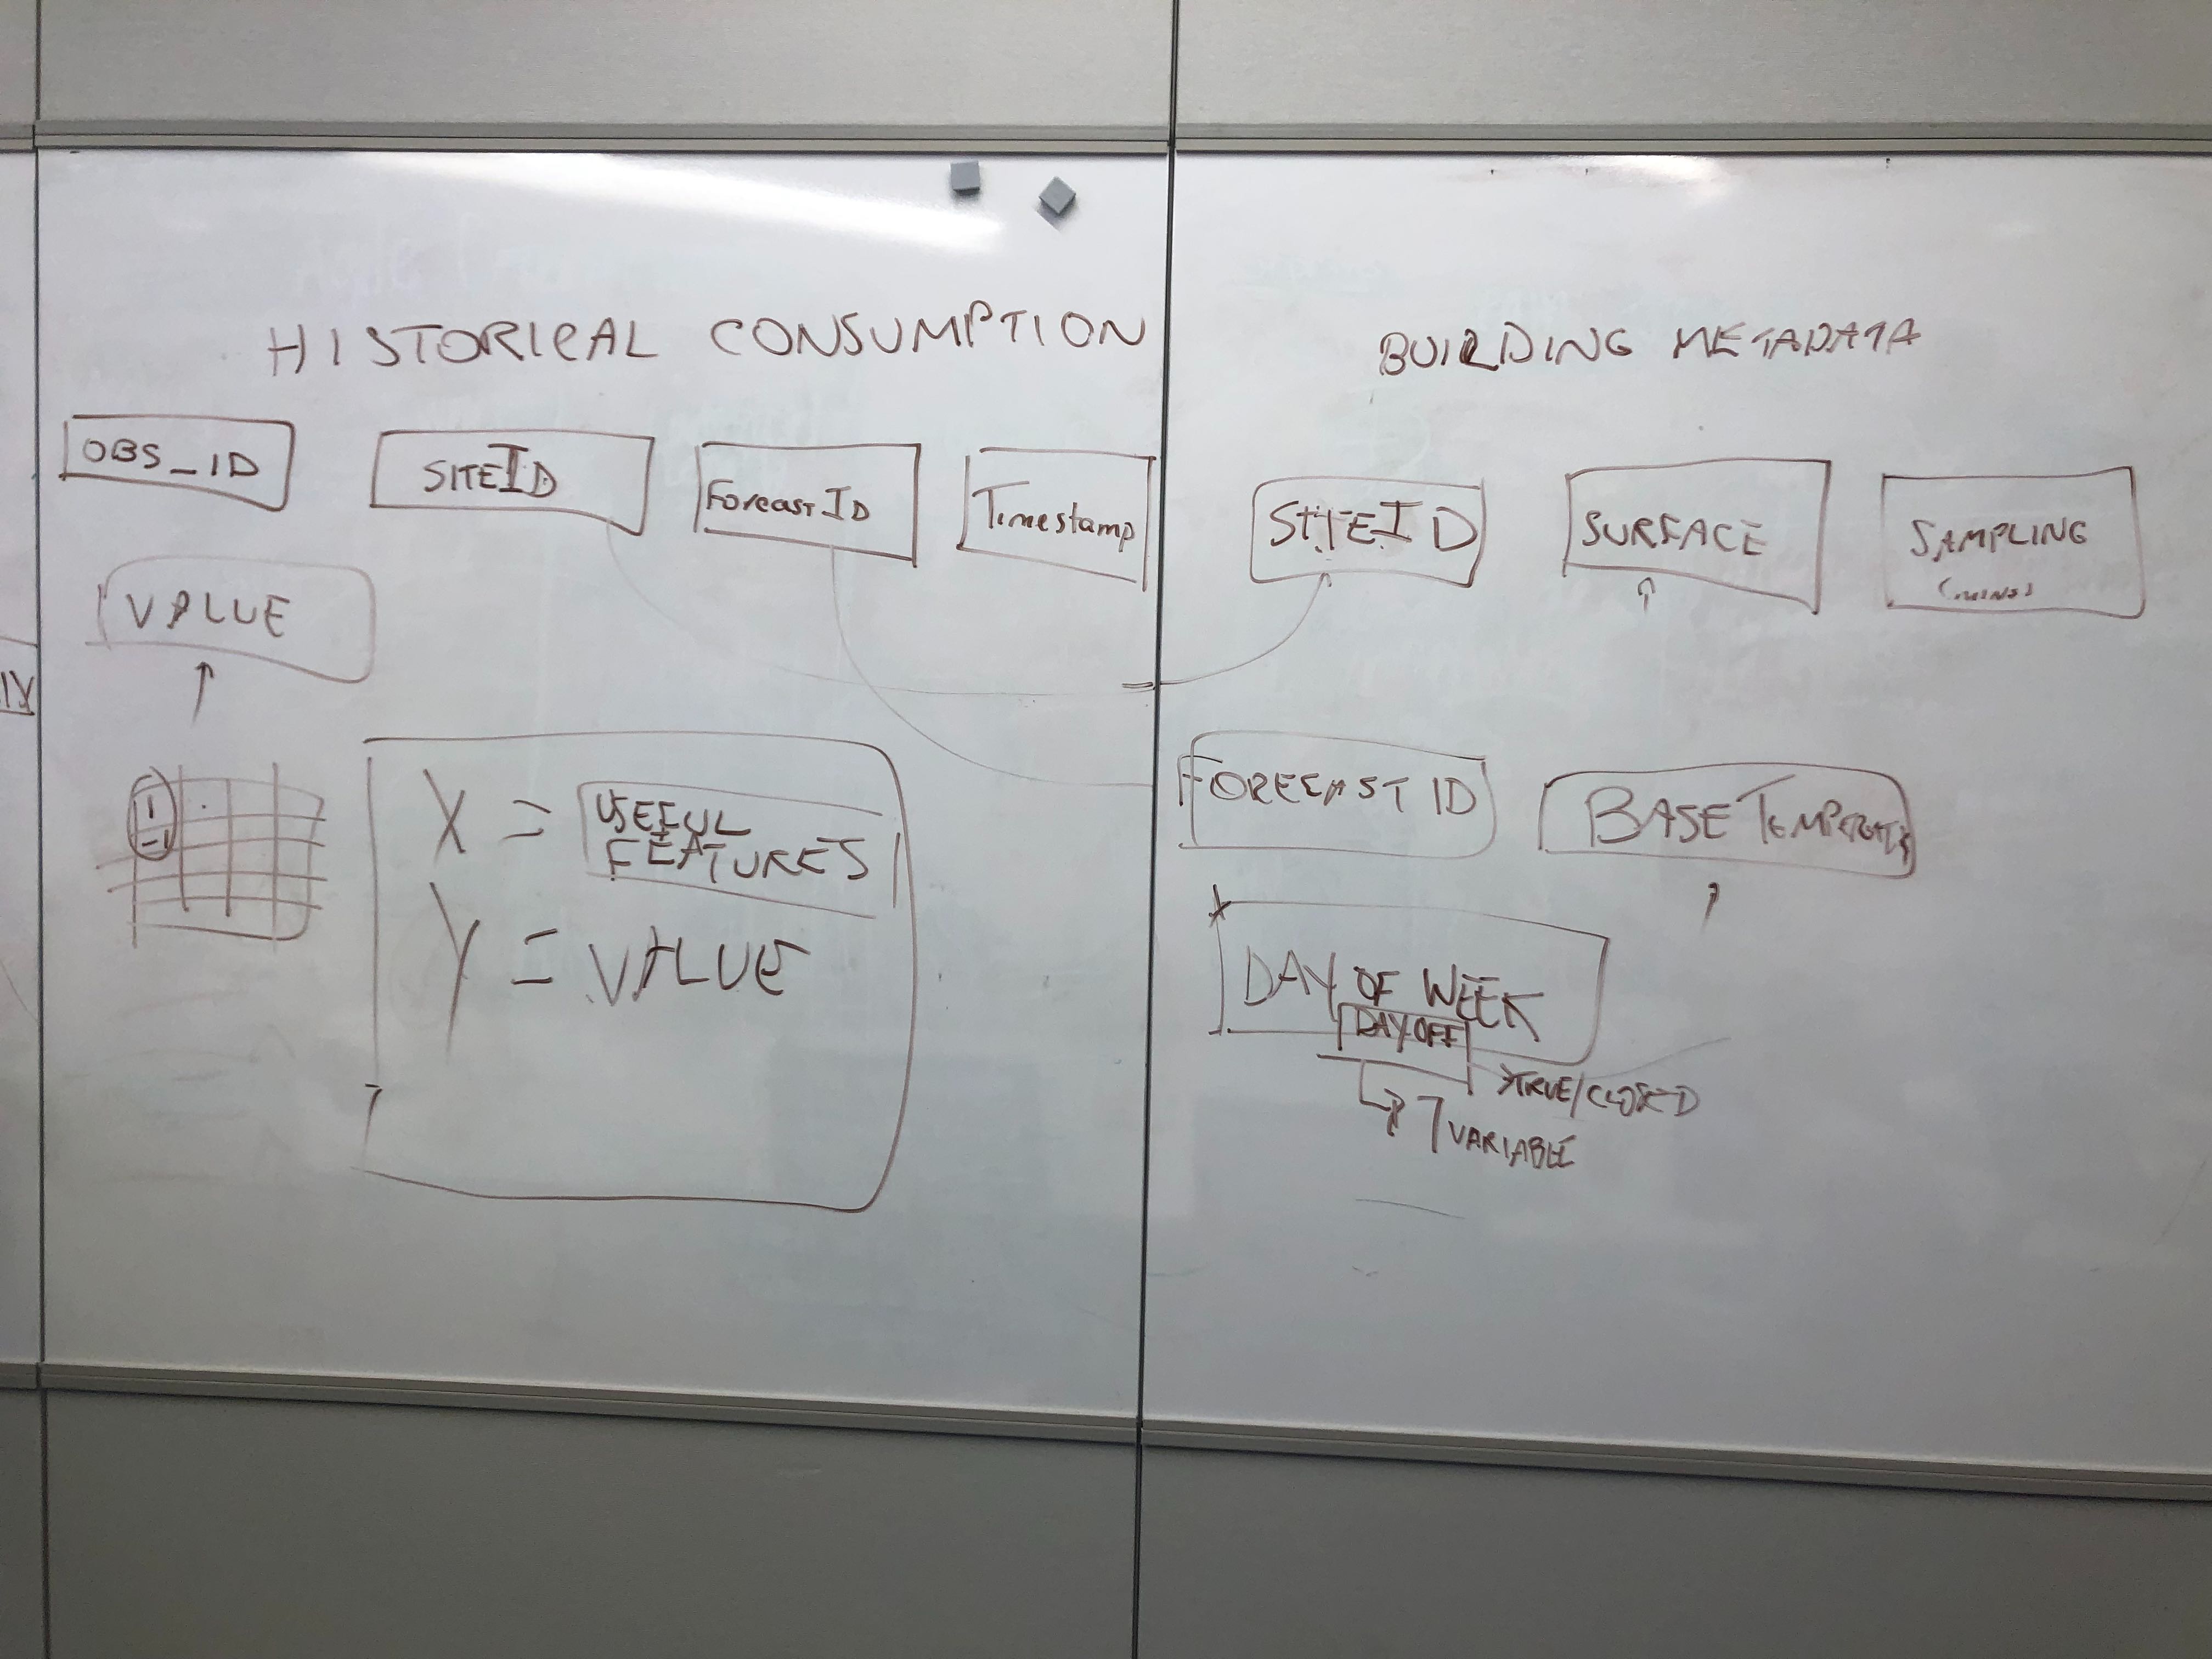 HISTORICAL CONSUMPTION
OBS_ID
SITEID
Forecast ID
Timestamp
VALUE
X = USEFUL
FEATURES
Y = VALUE
BUILDING METADATA
SITEID
SURFACE
SAMPLING
(MINS)
FORECAST ID
DAY OF WEEK
DAY OFF
TRUE/CLOSED
7 VARIABLE
BASE